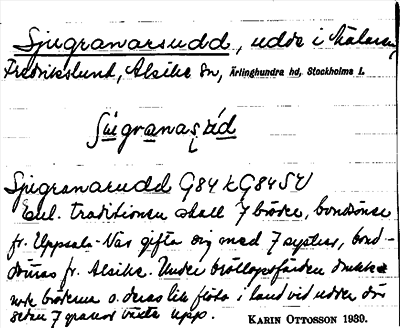 Sjugranarsudd, udde i Mälaren,
Fredrikslund, Alsike sn, Ärlinghundra hd, Stockholms l.
Sjugranarudd G84k G84SV
Enl. traditionen skall 7 bröder, bondsöner
fr. Uppsala-Näs gifta sig med 7 systrar, bond-
döttrar fr. Alsike. Under bröllopsfärden drunkna
bröderna o. deras lik flöto i land vid udden där
sedan 7 granar växte upp.
KARIN OTTOSSON 1939.